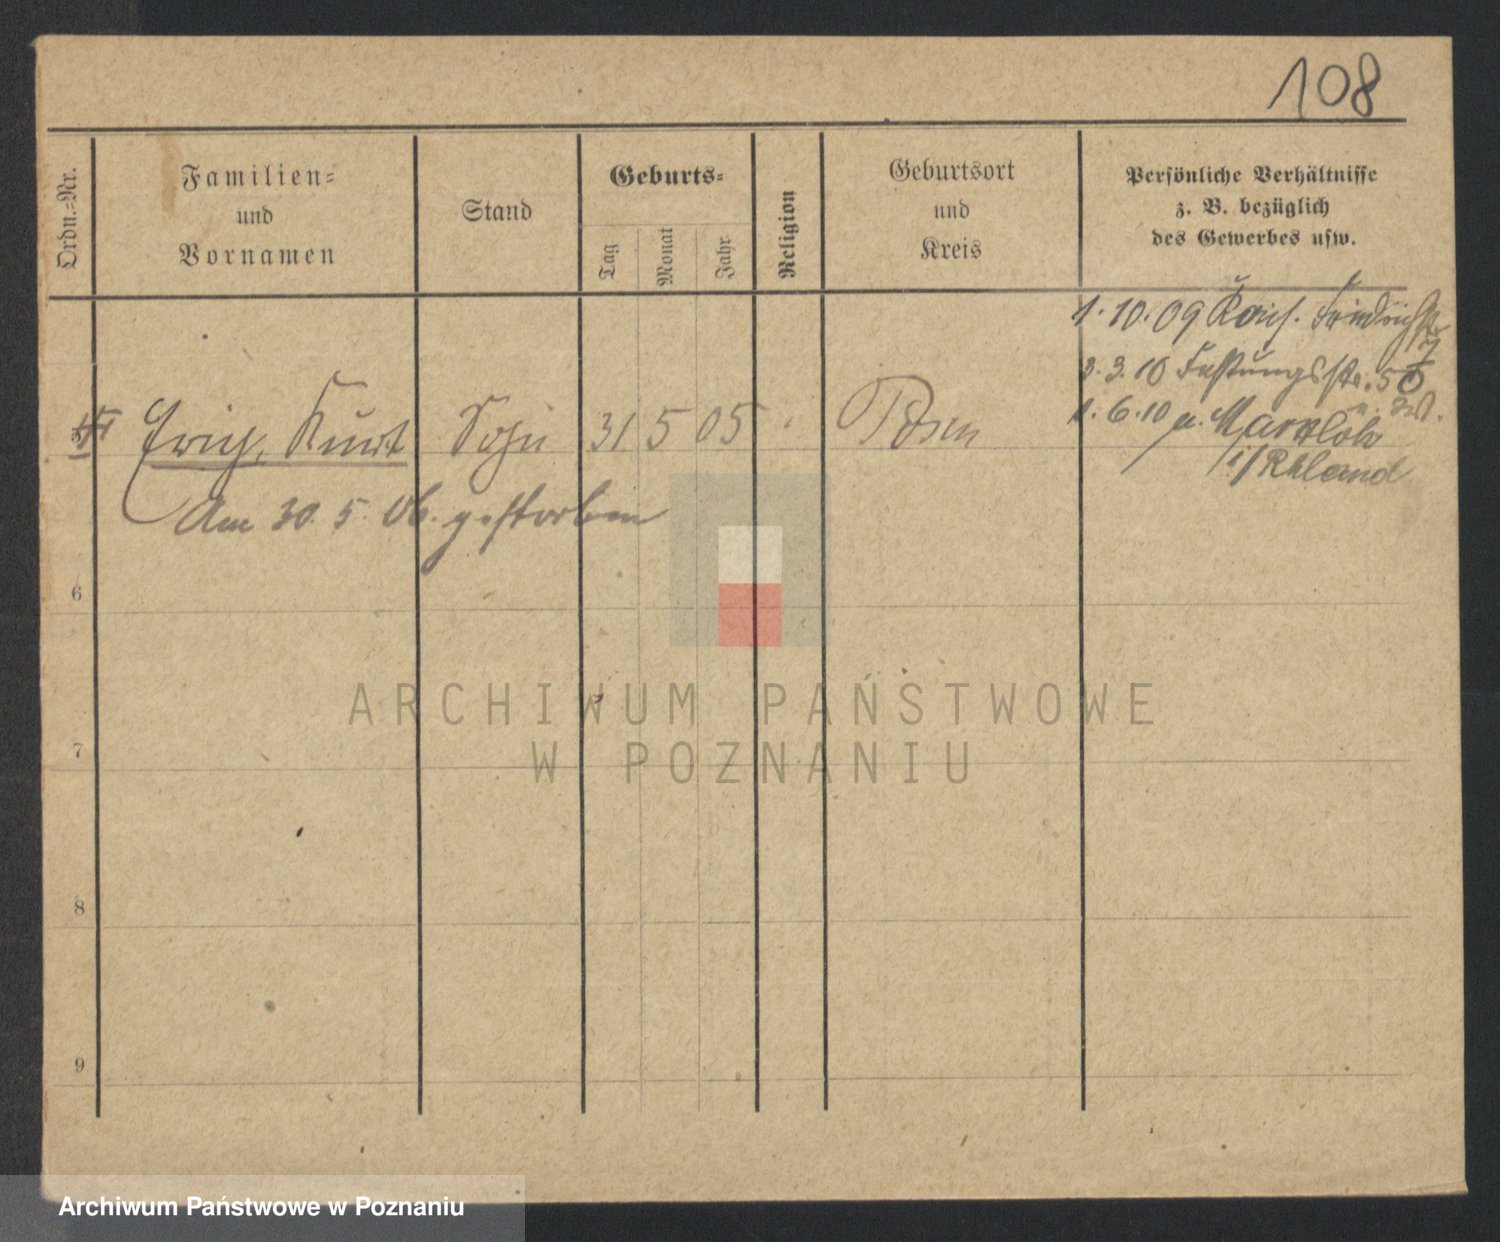 108
Ordn.-Nr.
Familien-
und
Vornamen
Stand
Geburts-
Tag
Monat
Jahr
Religion
Geburtsort
und
Kreis
Persönliche Verhältnisse
z. B. bezüglich
des Gewerbes usw.
1. 10. 09 Kais. Friedrichstr
7
3. 3. 10 Festungsstr. 5
1. 6. 10 n. Marxloh
i/Rhland
Erich, Kurt Sohn 31 5 05 Posen
Am 30. 5. 06. gestorben
6
7
8
9
ARCHIWUM PAŃSTWOWE
W POZNANIU
Archiwum Państwowe w Poznaniu